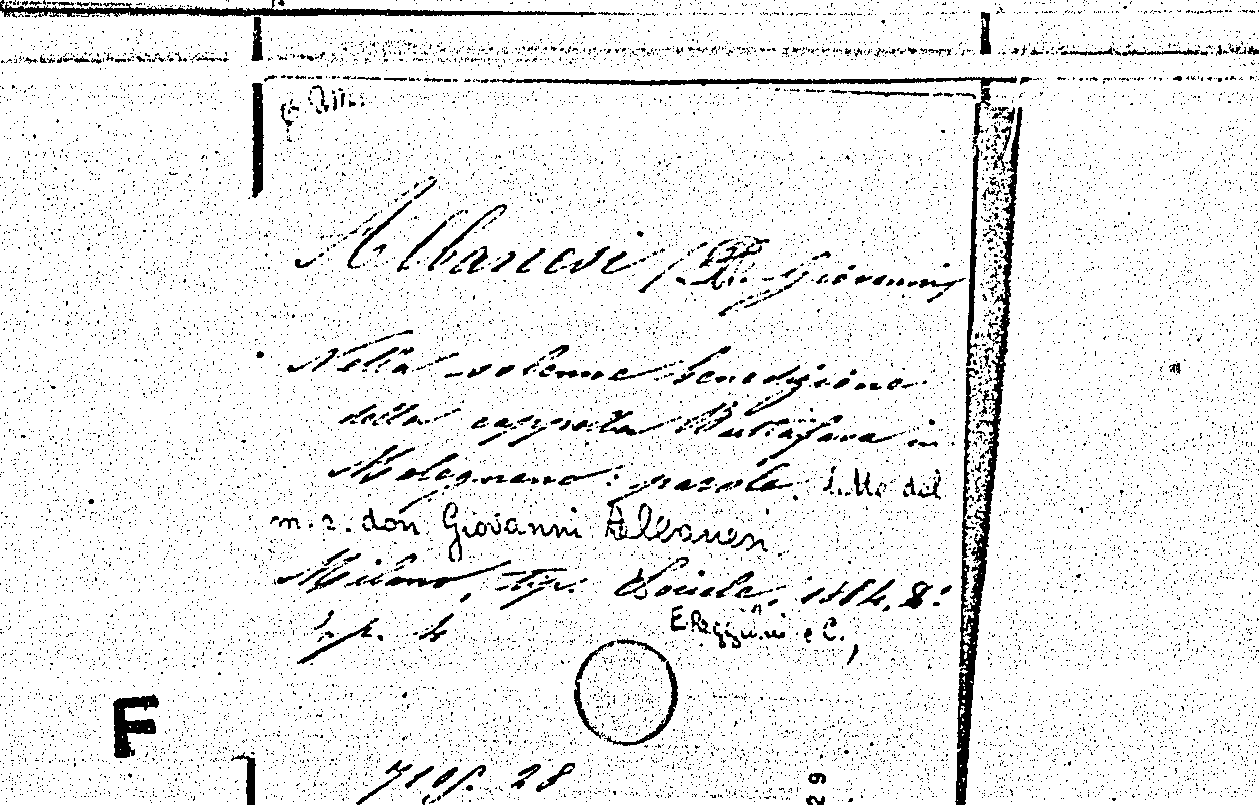 Albanesi (D. Giovanni)
Nella solenne benedizione
della cappella in
Melegnano: parole. del
m. r. don Giovanni Albanesi.
Milano, Tip. Sociale, 1884, 8°
p. 4
E. Reggiani e C.,
F
7105. 28
29